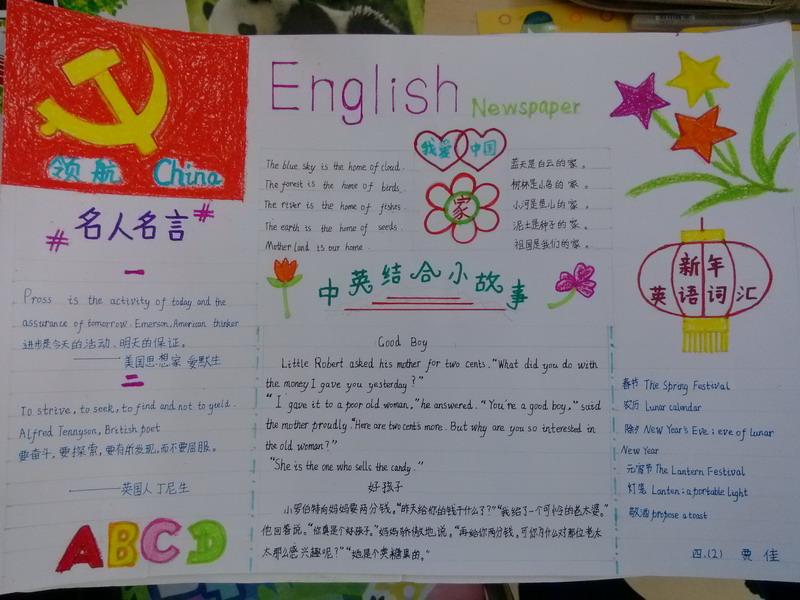 领航 China
# 名人名言 #
一
Pross is the activity of today and the
assurance of tomorrow. Emerson, American thinker
进步是今天的活动、明天的保证。
——美国思想家 爱默生
二
To strive, to seek, to find and not to yield.
Alfred Tennyson, British poet
要奋斗,要探索,要有所发现,而不要屈服。
——英国人丁尼生
ABCD
English Newspaper
我爱 中国
The blue sky is the home of cloud.
The forest is the home of birds.
The river is the home of fishes.
The earth is the home of seeds.
Mother land is our home.
家
蓝天是白云的家。
树林是小鸟的家。
小河是鱼儿的家。
泥土是种子的家。
祖国是我们的家。
中英结合小故事
Good Boy
Little Robert asked his mother for two cents. "What did you do with
the money I gave you yesterday?"
"I gave it to a poor old woman," he answered. "You're a good boy," said
the mother proudly. "Here are two cents more. But why are you so interested in
the old woman?"
"She is the one who sells the candy."
好孩子
小罗伯特向妈妈要两分钱。"昨天给你的钱干什么了?""我给了一个可怜的老太婆。"
他回答说。"你真是个好孩子。"妈妈骄傲地说。"再给你两分钱。可你为什么对那位老太
太那么感兴趣呢?""她是个卖糖果的。"
新年
英语词汇
春节 The Spring Festival
农历 Lunar calendar
除夕 New Year's Eve; eve of lunar
New Year
元宵节 The Lantern Festival
灯笼 Lanten; a portable light
敬酒 propose a toast
四.(2) 贾 佳